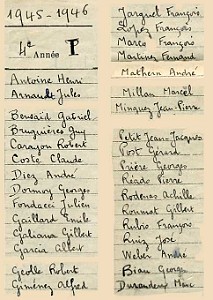 1945-1946
4e Année P
Antoine Henri
Arnaud Jules
Bensaïd Gabriel
Bruguières Guy
Carayon Robert
Coste Claude
Diez André
Dormoy Georges
Fondacci Julien
Gaillard Emile
Galiana Gilbert
Garcia Albert
Geolle Robert
Gimenez Alfred
Jarquel François
Lopez François
Marco François
Martinez Fernand
Mathern André
Millan Marcel
Minguez Jean-Pierre
Petit Jean-Jacques
Post Gérard
Prière Georges
Réado Pierre
Rodenas Achille
Roumot Gilbert
Rubio François
Ruiz José
Weber André
Biau Georges
Marc